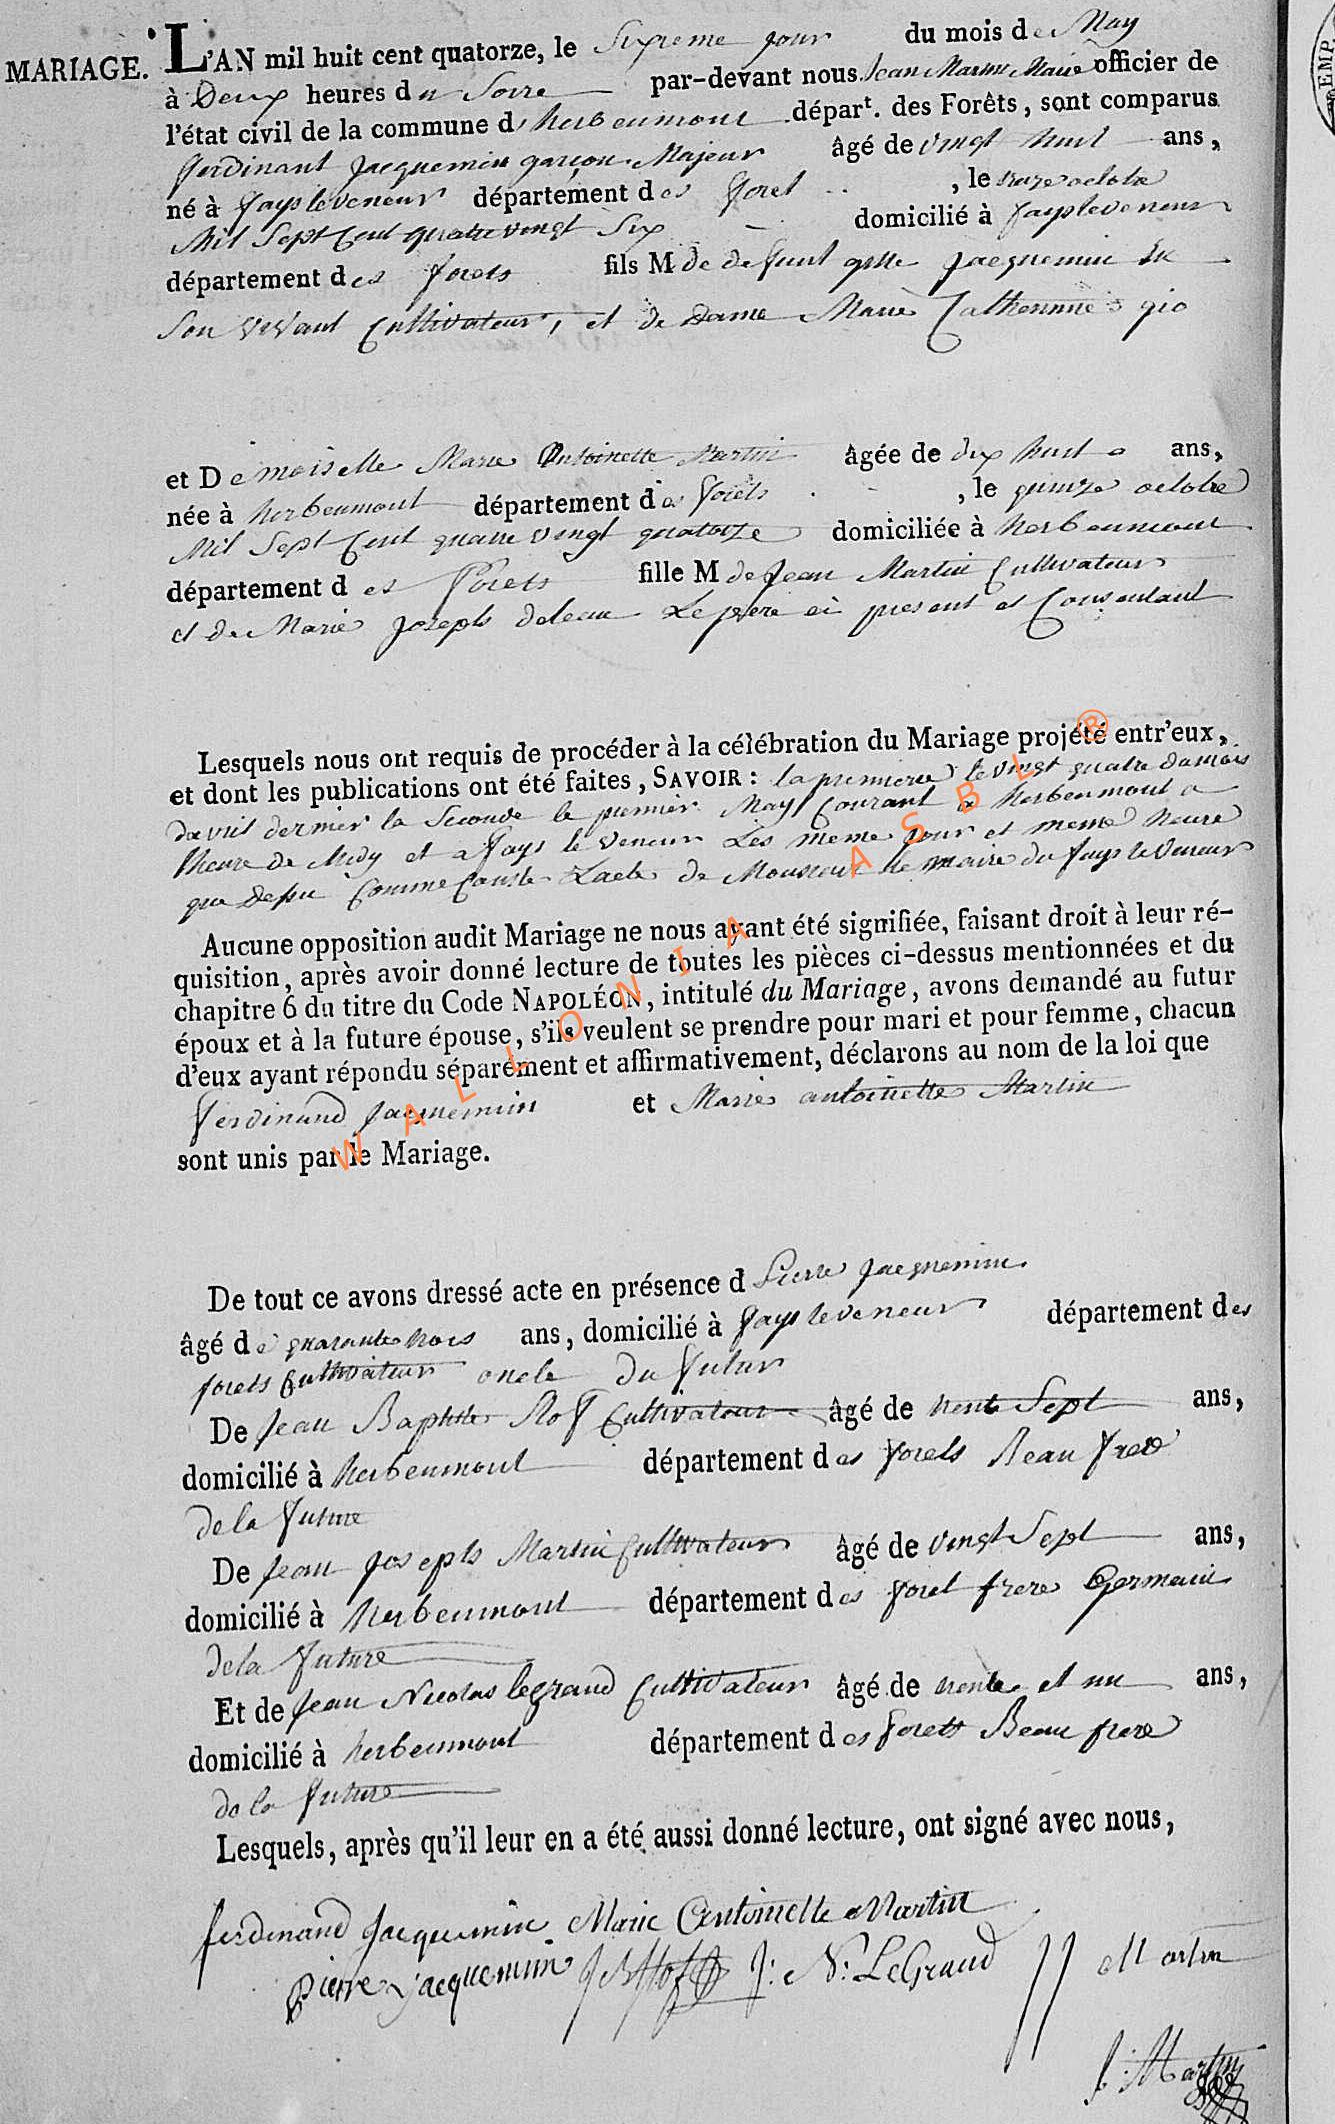 MARIAGE. L'AN mil huit cent quatorze, le Sixieme jour du mois de May
à Deux heures du Soire par-devant nous Jean Martin Maire officier de
l'état civil de la commune d'herbeumont départ. des Forêts, sont comparus
ferdinant Jacquemin garçon Majeur âgé de vingt huit ans,
né à faysleveneur département des foret, le octobre
Mil Sept Cent quatre vingt Six domicilié à faysleveneur
département des forets fils M de defunt Jacquemin En
Son vivant Cultivateur, et de Dame Marie Catherinne gio
et Demoiselle Marie Antoinette Martin âgée de dix huit ans,
née à herbeumont département des forets, le quinze octobre
Mil Sept Cent quatre vingt quatorze domiciliée à herbeumont
département des forets fille M de Jean Martin Cultivateur
et de Marie joseph deleau Le pere ci present et Consentant
Lesquels nous ont requis de procéder à la célébration du Mariage projété entr'eux,
et dont les publications ont été faites, SAVOIR : la premiere le vingt quatre du mois
davril dernier la Seconde le premier May Courant a herbeumont a
lheure de Midy et a fays le veneur Les meme jour et meme heure
que Conste Lacte de Monsieur le maire du fays le veneur
Aucune opposition audit Mariage ne nous ayant été signifiée, faisant droit à leur ré-
quisition, après avoir donné lecture de toutes les pièces ci-dessus mentionnées et du
chapitre 6 du titre du Code NAPOLÉON, intitulé du Mariage, avons demandé au futur
époux et à la future épouse, s'ils veulent se prendre pour mari et pour femme, chacun
d'eux ayant répondu séparément et affirmativement, déclarons au nom de la loi que
ferdinand Jacquemin et Marie antoinette Martin
sont unis par le Mariage.
WALLONIA ASBL ®
De tout ce avons dressé acte en présence d Pierre jacquemin
âgé de quarante trois ans, domicilié à fays leveneur département des
forets Cultivateur oncle du futur
De jean Baptiste Cultivateur âgé de trente Sept ans,
domicilié à herbeumont département des forets Beau frere
de la future
De jean joseph Martin Cultivateur âgé de vingt Sept ans,
domicilié à herbeumont département des foret frere Germain
de la future
Et de jean Nicolas legrand Cultivateur âgé de trente et un ans,
domicilié à herbeumont département des forets Beau frere
de la future
Lesquels, après qu'il leur en a été aussi donné lecture, ont signé avec nous,
ferdinand Jacquemin Marie Antoinette Martin
Pierre jacquemin J: N: LeGrand JJ Martin
J: Martin
EMP.